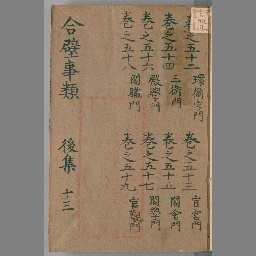 卷之五十二 環衛官門
卷之五十三 官官門
卷之五十四 三衛門
卷之五十五 閤舍門
卷之五十六 殿學門
卷之五十七 閣學門
卷之五十八 閣職門
卷之五十九 官觀門
合璧事類 後集 十三